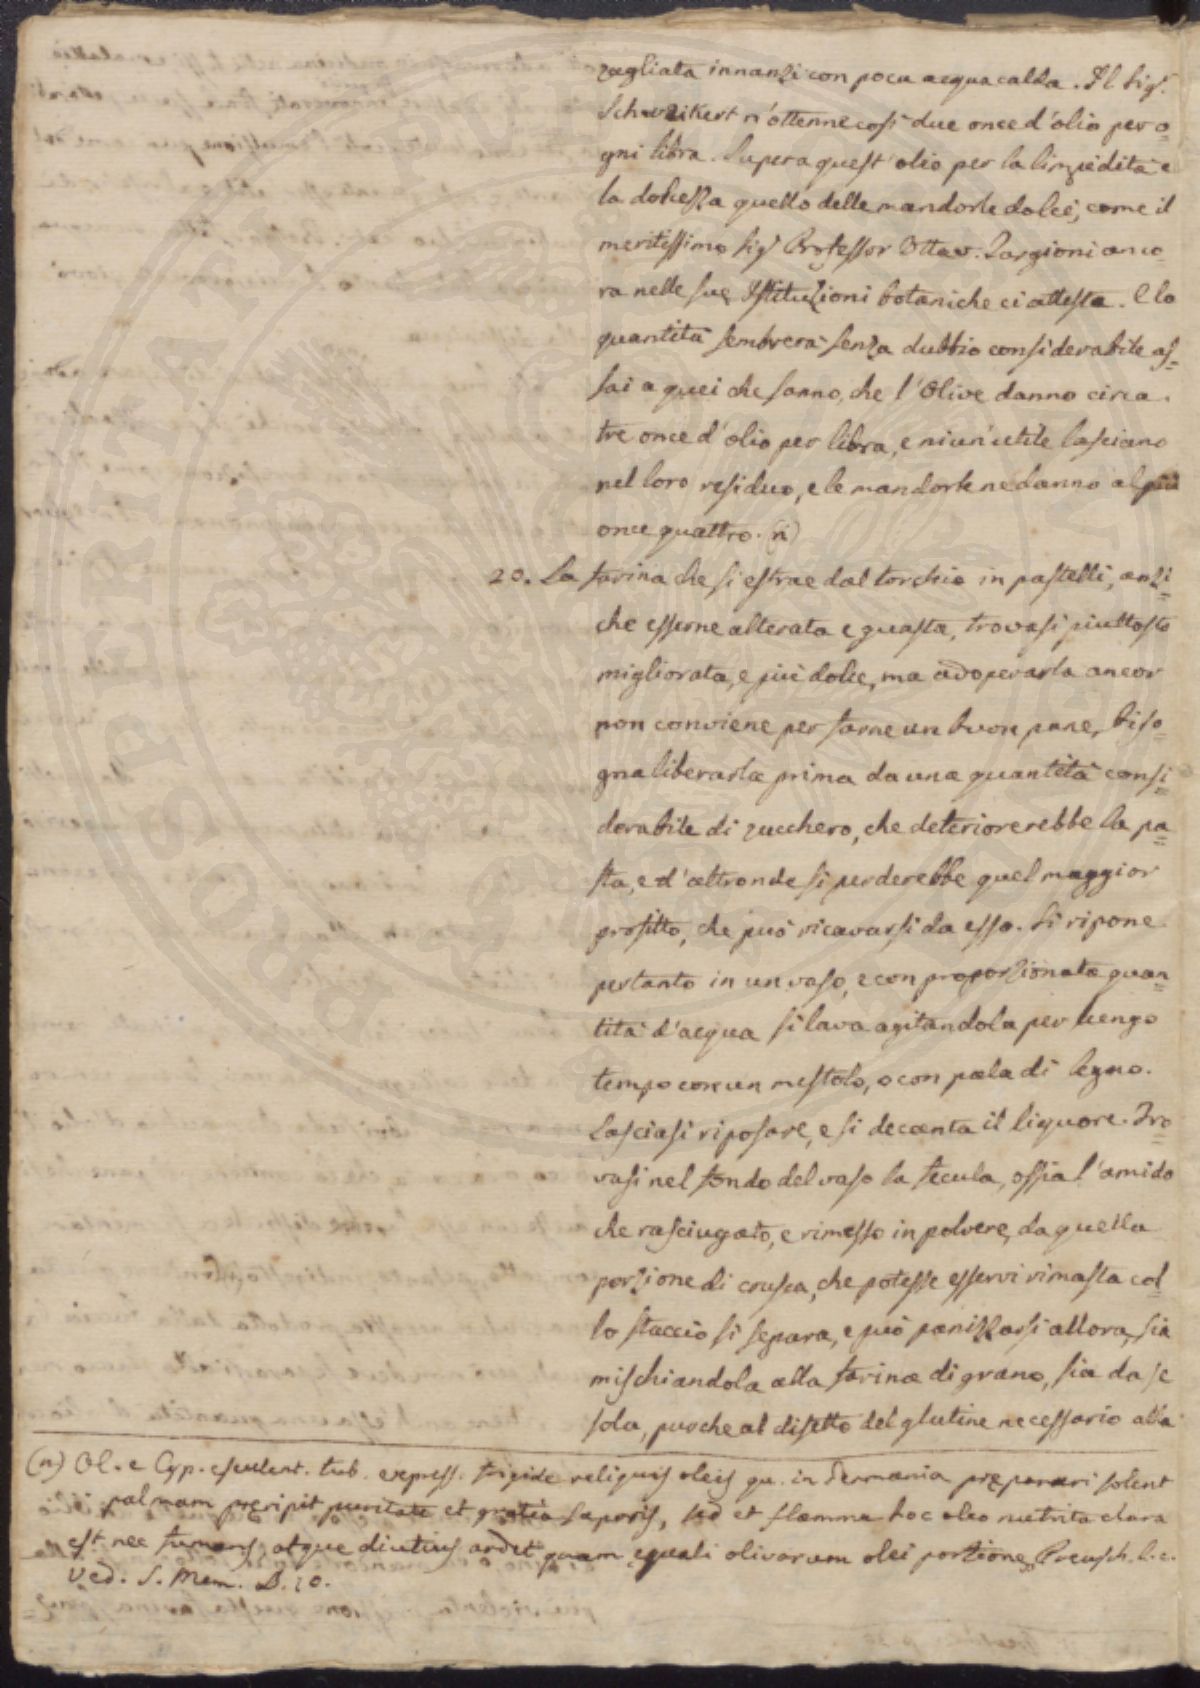 zagliata innanzi con poca acqua calda. Il Sigr.
Schweikert n'ottenne così due once d'olio per o=
gni libra. Supera quest'olio per la limpidità e
la dolcezza quello delle mandorle dolci, come il
meritissimo Sigr Professor Ottav. Targioni anco=
ra nelle sue Istituzioni botaniche ci attesta. E la
quantità sembrerà senza dubbio considerabile as=
sai a quei che sanno, che l'Olive danno circa
tre once d'olio per libra, e niun'utile lasciano
nel loro residuo, e le mandorle ne danno al più
once quattro. (n)
20. La farina che si estrae dal torchio in pastelli, anzi=
che esserne alterata e guasta, trovasi piuttosto
migliorata, e più dolce, ma adoperarla ancor
non conviene per farne un buon pane, biso=
gna liberarla prima da una quantità consi=
derabile di zucchero, che deteriorerebbe la pa=
sta, e d'altronde si perderebbe quel maggior
profitto, che può ricavarsi da esso. Si ripone
pertanto in un vaso, e con proporzionata quan=
tità d'acqua si lava agitandola per luengo
tempo con un mestolo, o con pala di legno.
Lasciasi riposare, e si decanta il liquore. Tro=
vasi nel fondo del vaso la fecula, ossia l'amido
che rasciugato, e rimesso in polvere, da quella
porzione di crusca, che potesse esservi rimasta col=
lo staccio si separa, e può panizzarsi allora, sia
mischiandola alla farina di grano, sia da se
sola, purche al difetto del glutine necessario alla
(n) Ol. e Cyp. esculent. tub. express. frigide reliquis oleis qu. in Germania præparari solent
palmam præripit puritate et gratia saporis, sed et flamma hoc oleo nutrita clara
est nec fumans, atque diutius ardet quam æquali olivarum olei portione, Preusch. l. c.
Ved. S. Mem. B. 10.